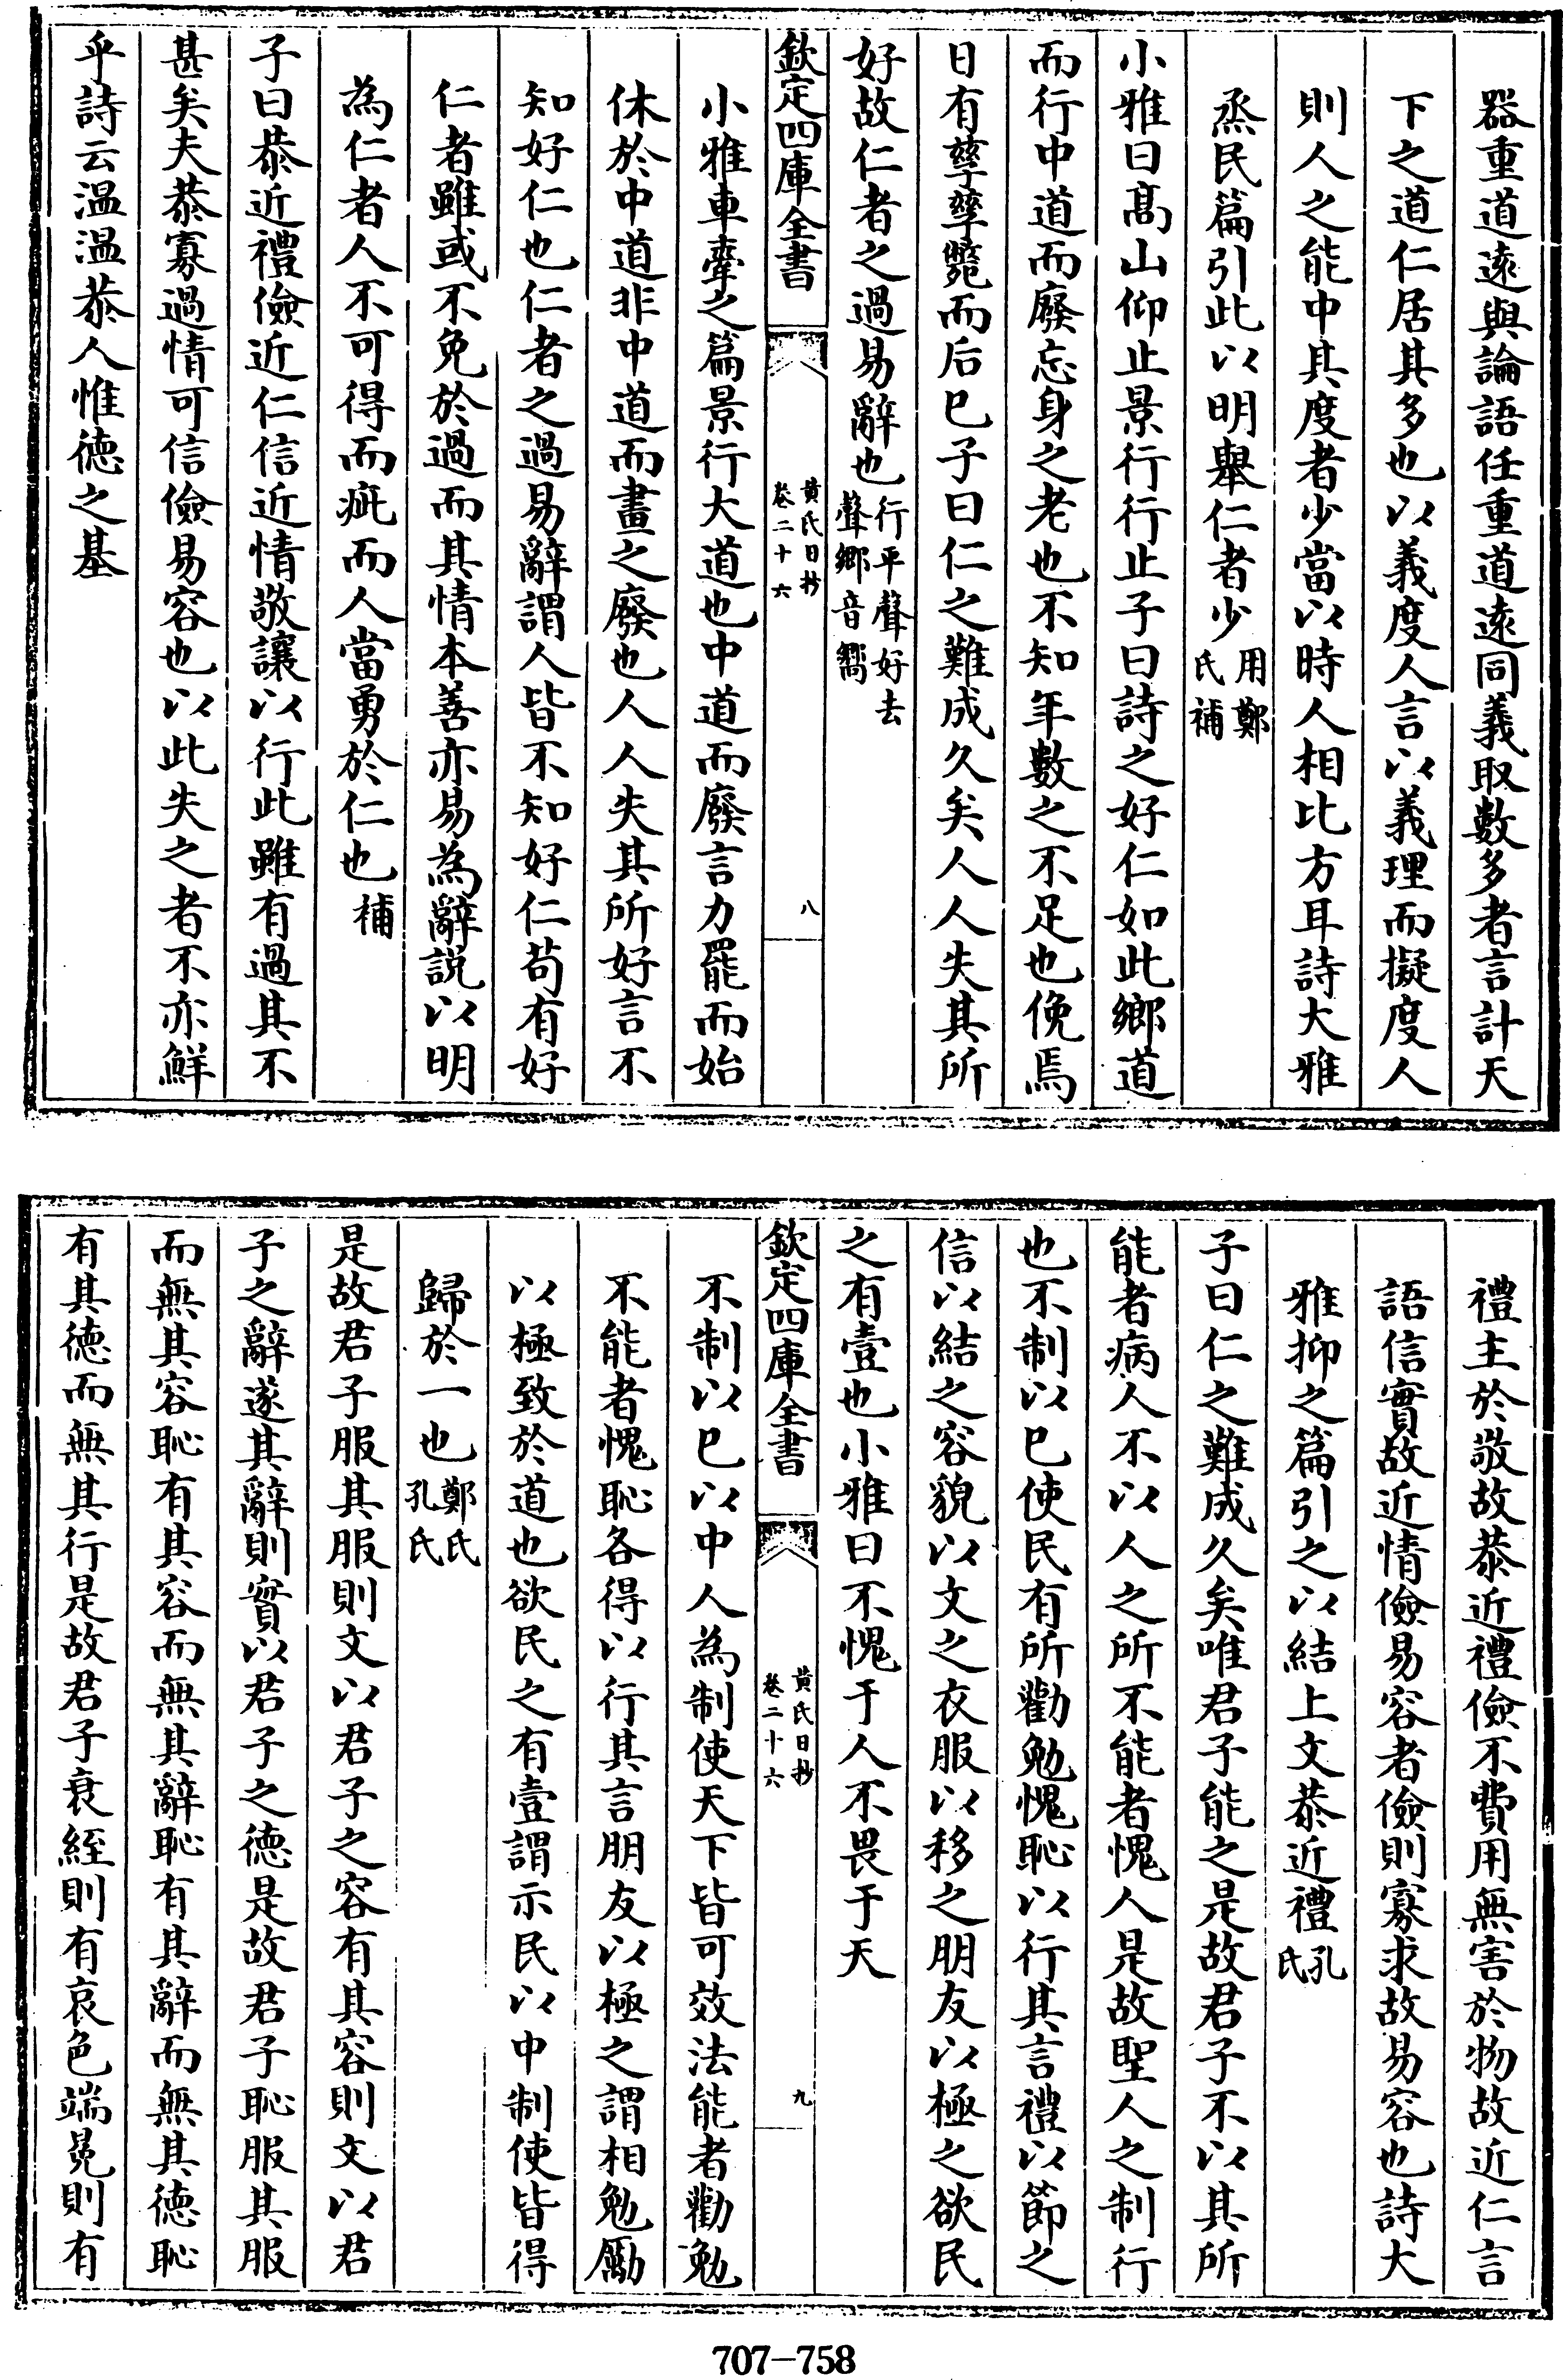 器重道遠與論語任重道遠同義取數多者言計天
下之道仁居其多也以義度人言以義理而擬度人
則人之能中其度者少當以時人相比方耳詩大雅
烝民篇引此以明舉仁者少用鄭氏補
小雅曰髙山仰止景行行止子曰詩之好仁如此鄉道
而行中道而廢忘身之老也不知年數之不足也俛焉
日有孳孳斃而后已子曰仁之難成久矣人人失其所
好故仁者之過易辭也行平聲好去聲鄉音嚮
欽定四庫全書
黄氏日抄
卷二十六
八
小雅車舝之篇景行大道也中道而廢言力罷而始
休於中道非中道而畫之廢也人人失其所好言不
知好仁也仁者之過易辭謂人皆不知好仁苟有好
仁者雖或不免於過而其情本善亦易為辭説以明
為仁者人不可得而疵而人當勇於仁也補
子曰恭近禮儉近仁信近情敬讓以行此雖有過其不
甚矣夫恭寡過情可信儉易容也以此失之者不亦鮮
乎詩云温温恭人惟徳之基
禮主於敬故恭近禮儉不費用無害於物故近仁言
語信實故近情儉易容者儉則寡求故易容也詩大
雅抑之篇引之以結上文恭近禮孔氏
子曰仁之難成久矣唯君子能之是故君子不以其所
能者病人不以人之所不能者愧人是故聖人之制行
也不制以已使民有所勸勉愧恥以行其言禮以節之
信以結之容貌以文之衣服以移之朋友以極之欲民
之有壹也小雅曰不愧于人不畏于天
欽定四庫全書
黄氏日抄
卷二十六
九
不制以已以中人為制使天下皆可效法能者勸勉
不能者愧恥各得以行其言朋友以極之謂相勉勵
以極致於道也欲民之有壹謂示民以中制使皆得
歸於一也鄭氏孔氏
是故君子服其服則文以君子之容有其容則文以君
子之辭遂其辭則實以君子之徳是故君子恥服其服
而無其容恥有其容而無其辭恥有其辭而無其徳恥
有其徳而無其行是故君子衰絰則有哀色端冕則有
707-758